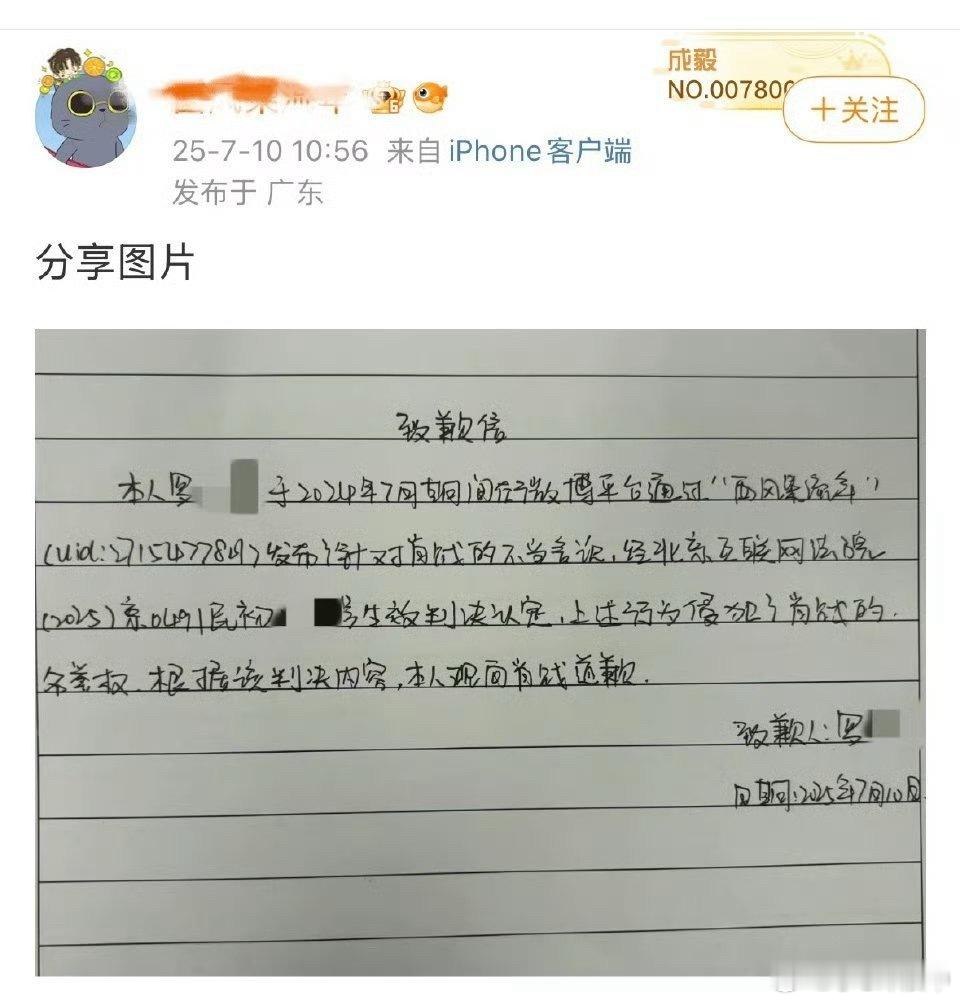 成毅
NO.007800
+关注
25-7-10 10:56 来自 iPhone客户端
发布于 广东
分享图片
致歉信
本人罗 于2024年7月期间在微博平台通过“西风乘流年”
(uid:2715477849)发布了针对肖战的不当言论,经北京互联网法院
(2025)京0491民初 号生效判决认定,上述行为侵犯了肖战的
名誉权.根据该判决内容,本人现向肖战道歉.
致歉人:罗
日期:2025年7月10日.